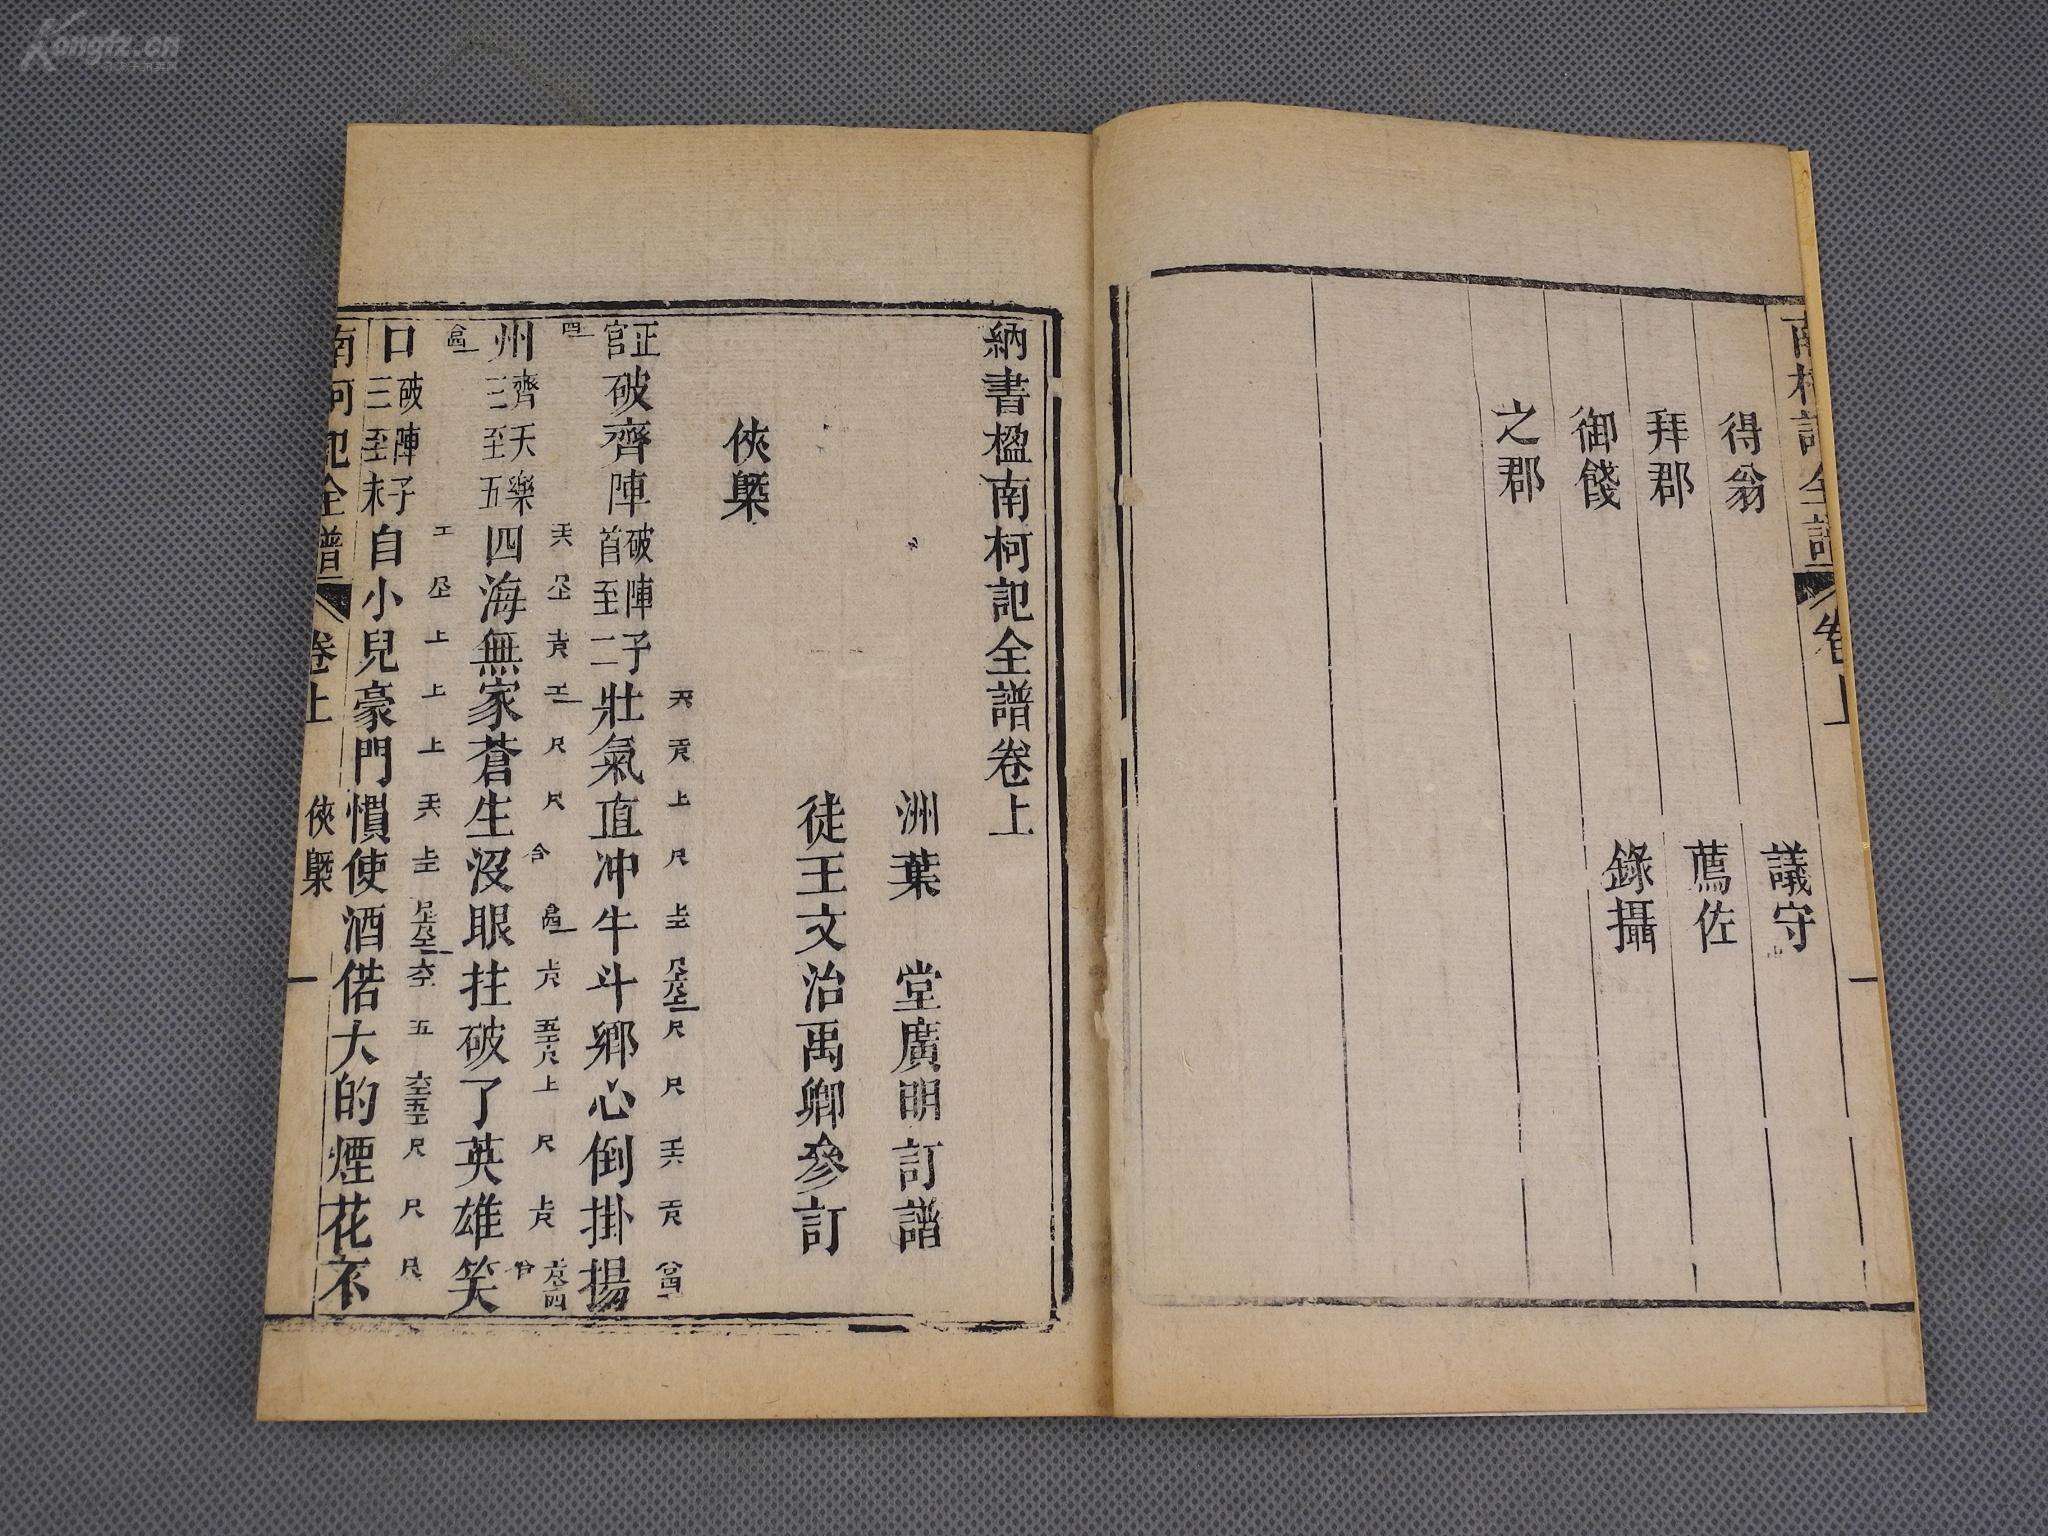 南柯記全譜 卷上 一
得翁 議守
拜郡 薦佐
御餞 錄攝
之郡
納書楹南柯記全譜卷上
洲葉 堂廣明訂譜
徒王文治禹卿參訂
俠槩
正官破齊陣破陣子首至二壯氣直冲牛斗鄉心倒掛揚
州齊天樂三至五四海無家蒼生沒眼拄破了英雄笑
口破陣子三至末自小兒豪門慣使酒偌大的煙花不
南柯記全譜 卷上 俠槩 一
Kongfz.cn